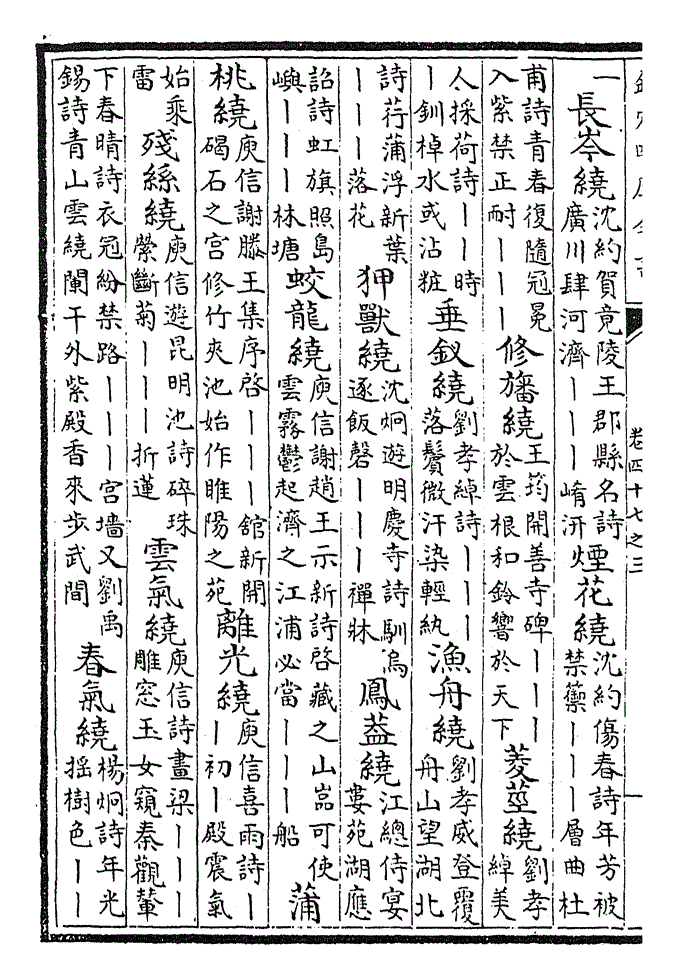 卷四十七之三
一長岑繞沈約賀竟陵王郡縣名詩廣川肆河濟丨丨丨崤汧煙花繞沈約傷春詩年芳被禁籞丨丨丨層曲杜
甫詩青春復隨冠冕入紫禁正耐丨丨丨修旛繞王筠開善寺碑丨丨丨於雲根和鈴響於天下菱莖繞劉孝綽美
人採荷詩丨丨時丨釧棹水或沾粧垂釵繞劉孝綽詩丨丨丨落鬢微汗染輕紈漁舟繞劉孝威登覆舟山望湖北
詩荇蒲浮新葉丨丨丨落花狎獸繞沈炯遊明慶寺詩馴烏逐飯磬丨丨丨禪牀鳳葢繞江總侍宴婁苑湖應
詔詩虹旗照島嶼丨丨丨林塘蛟龍繞庾信謝趙王示新詩啓藏之山嵓可使雲霧鬱起濟之江浦必當丨丨丨船蒲
桃繞庾信謝滕王集序啓丨丨丨舘新開碣石之宮修竹夾池始作睢陽之苑離光繞庾信喜雨詩丨丨初丨殿震氣
始乘雷殘絲繞庾信遊昆明池詩碎珠縈斷菊丨丨丨折蓮雲氣繞庾信詩畫梁丨丨丨雕窓玉女窺秦觀輦
下春晴詩衣冠紛禁路丨丨丨宮墻又劉禹錫詩青山雲繞闌干外紫殿香來步武間春氣繞楊炯詩年光揺樹色丨丨